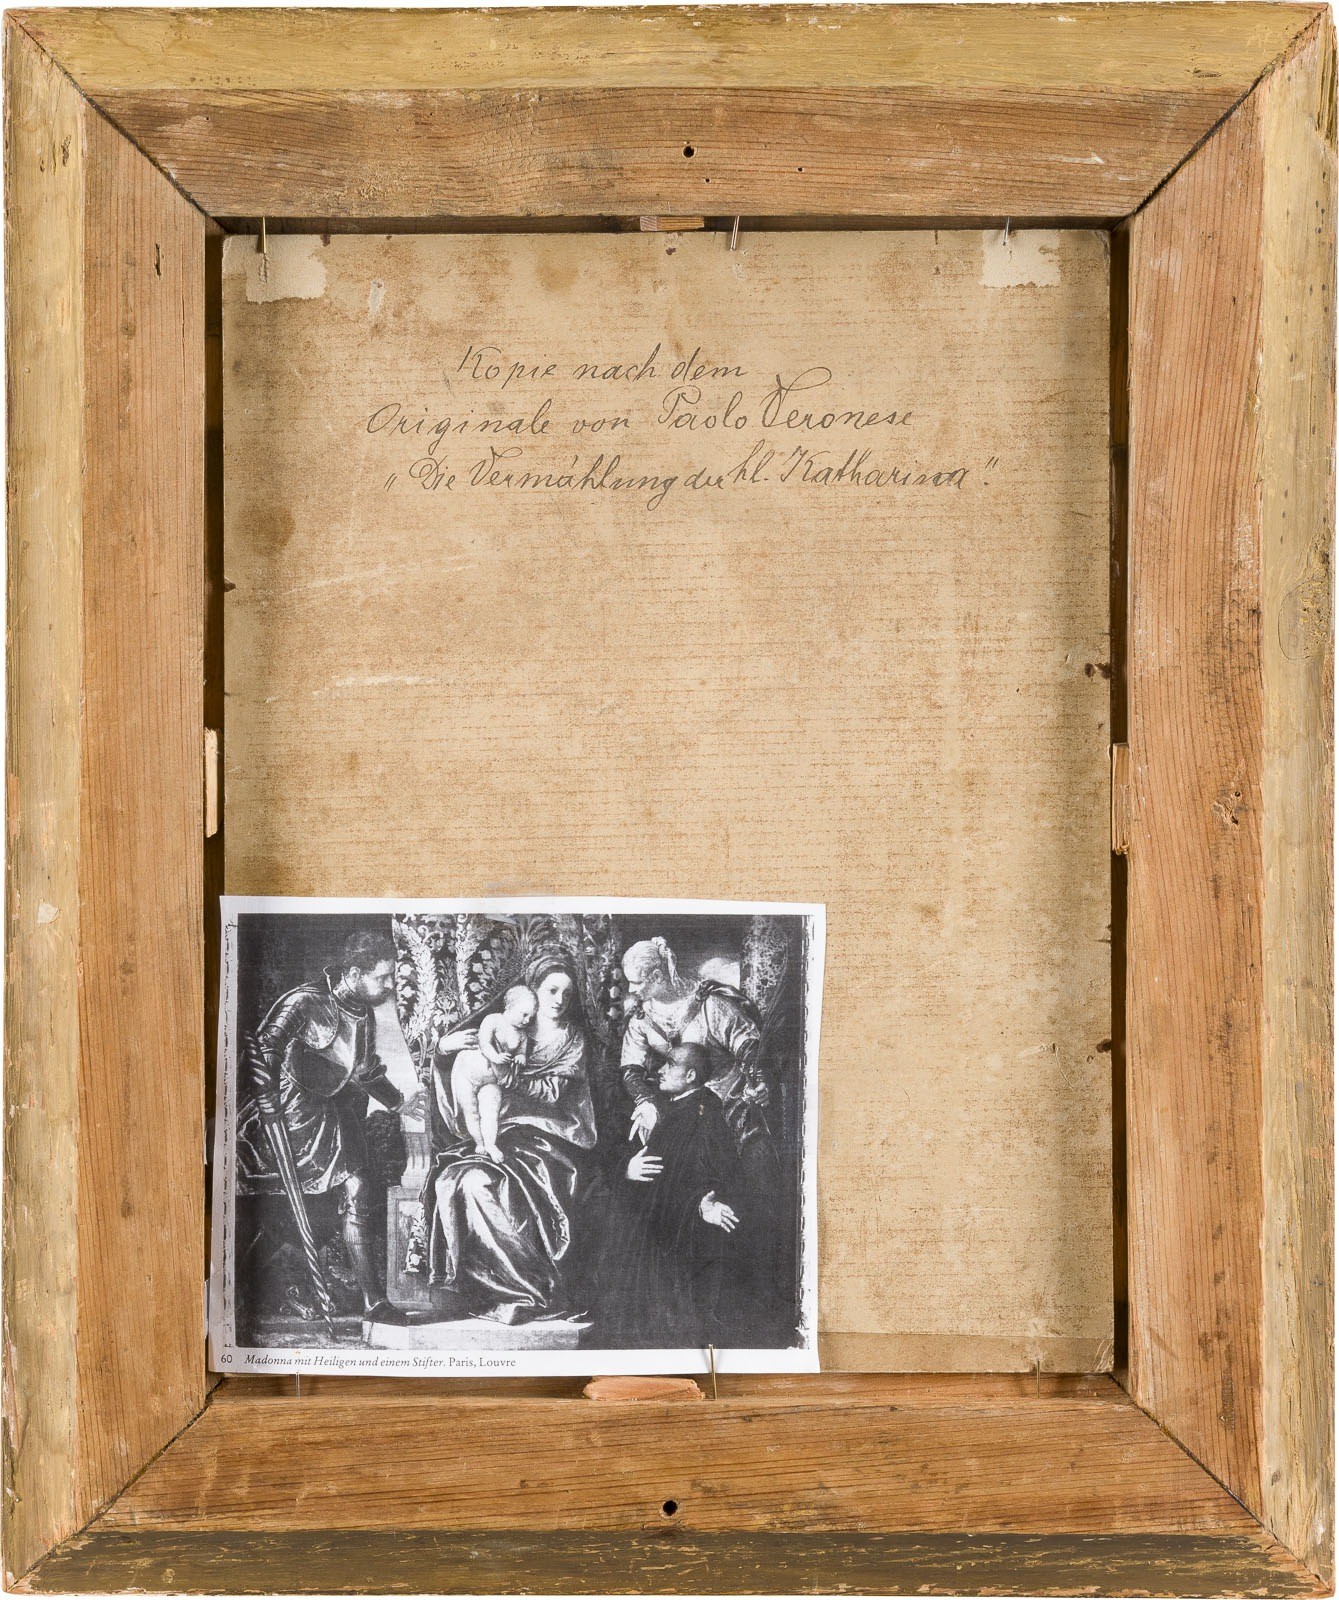 Kopie nach dem
Originale von Paolo Veronese
„Die Vermählung der hl. Katharina“.
60 Madonna mit Heiligen und einem Stifter. Paris, Louvre